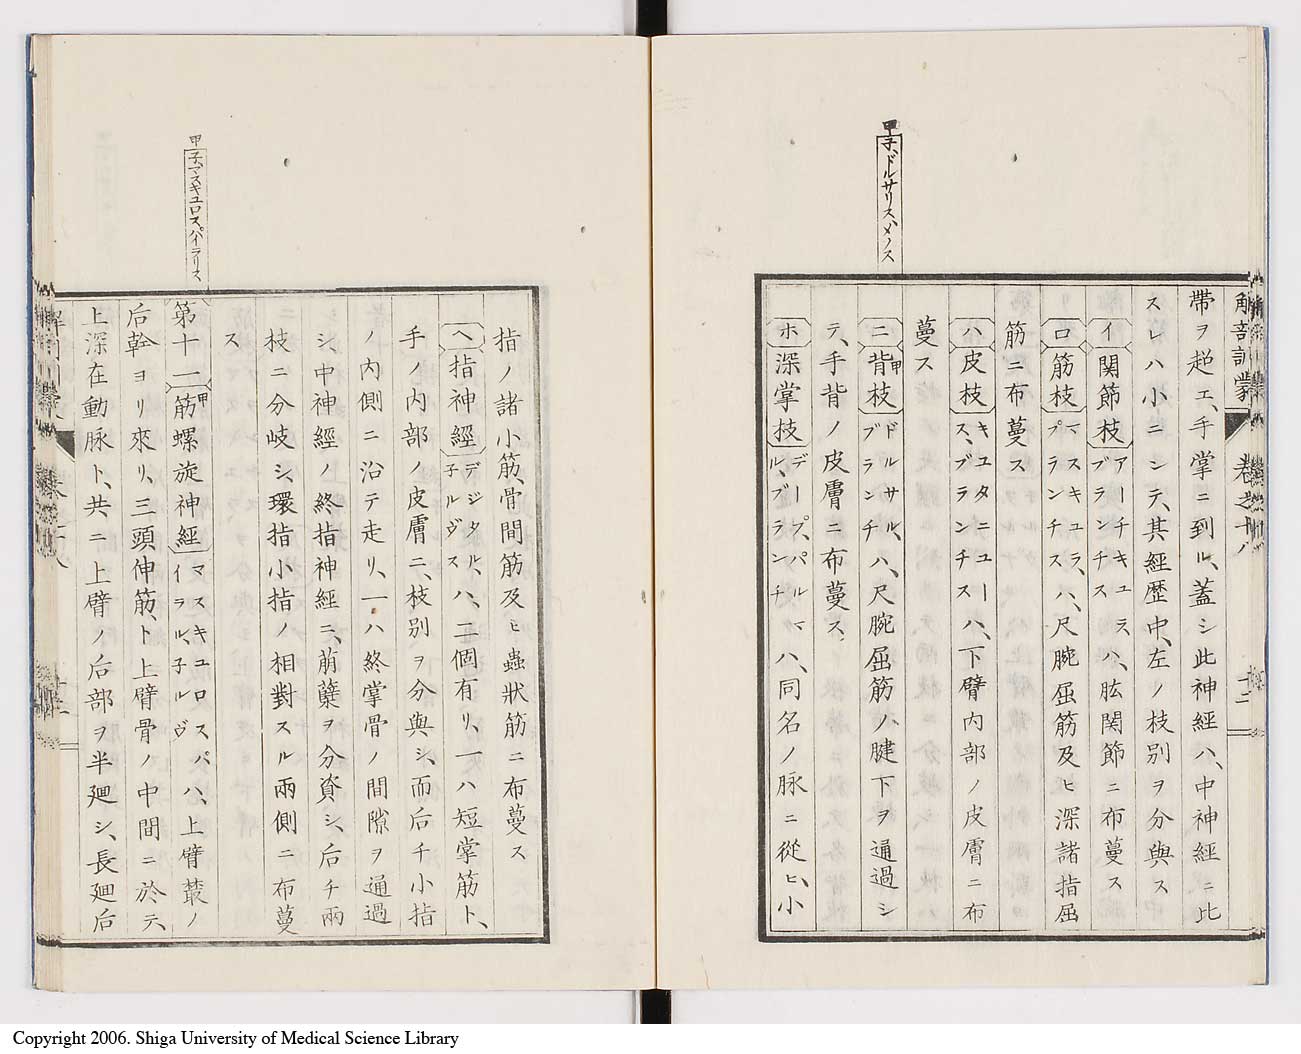 解剖訓蒙
卷之十八
十二
甲子、ドルサリス、メノス
帶ヲ超エ、手掌ニ到ル、蓋シ此神經ハ、中神經ニ比
スレハ小ニシテ、其經歷中、左ノ枝別ヲ分與ス
イ 關節枝 アーチキユラ、ブランチス ハ、肱關節ニ布蔓ス
ロ 筋枝 マスキユラ、ブランチス ハ、尺腕屈筋及ヒ深諸指屈
筋ニ布蔓ス
ハ 皮枝 キユタニユース、ブランチス ハ、下臂內部ノ皮膚ニ布
蔓ス
ニ 背枝 甲 ドルサル、ブランチ ハ、尺腕屈筋ノ腱下ヲ通過シ
テ、手背ノ皮膚ニ布蔓ス
ホ 深掌枝 デープ、パルマル、ブランチ ハ、同名ノ脉ニ從ヒ、小
甲子、マスキユロスパイラリス
指ノ諸小筋、骨間筋及ヒ蟲狀筋ニ布蔓ス
ヘ 指神經 デジタル、子ルヴス ハ、二個有リ、一ハ短掌筋ト、
手ノ內部ノ皮膚ニ、枝別ヲ分與シ、而后チ小指
ノ內側ニ沿テ走リ、一ハ終掌骨ノ間隙ヲ通過
シ、中神經ノ終指神經ニ、萠蘖ヲ分資シ、后チ兩
枝ニ分岐シ、環指小指ノ相對スル兩側ニ布蔓
ス
第十一 筋螺旋神經 甲 マスキユロスパイラル、子ルヴ ハ、上臂叢ノ
后幹ヨリ來リ、三頭伸筋、ト上臂骨ノ中間ニ於テ、
上深在動脉ト、共ニ上臂ノ后部ヲ半廻シ、長廻后
Copyright 2006. Shiga University of Medical Science Library